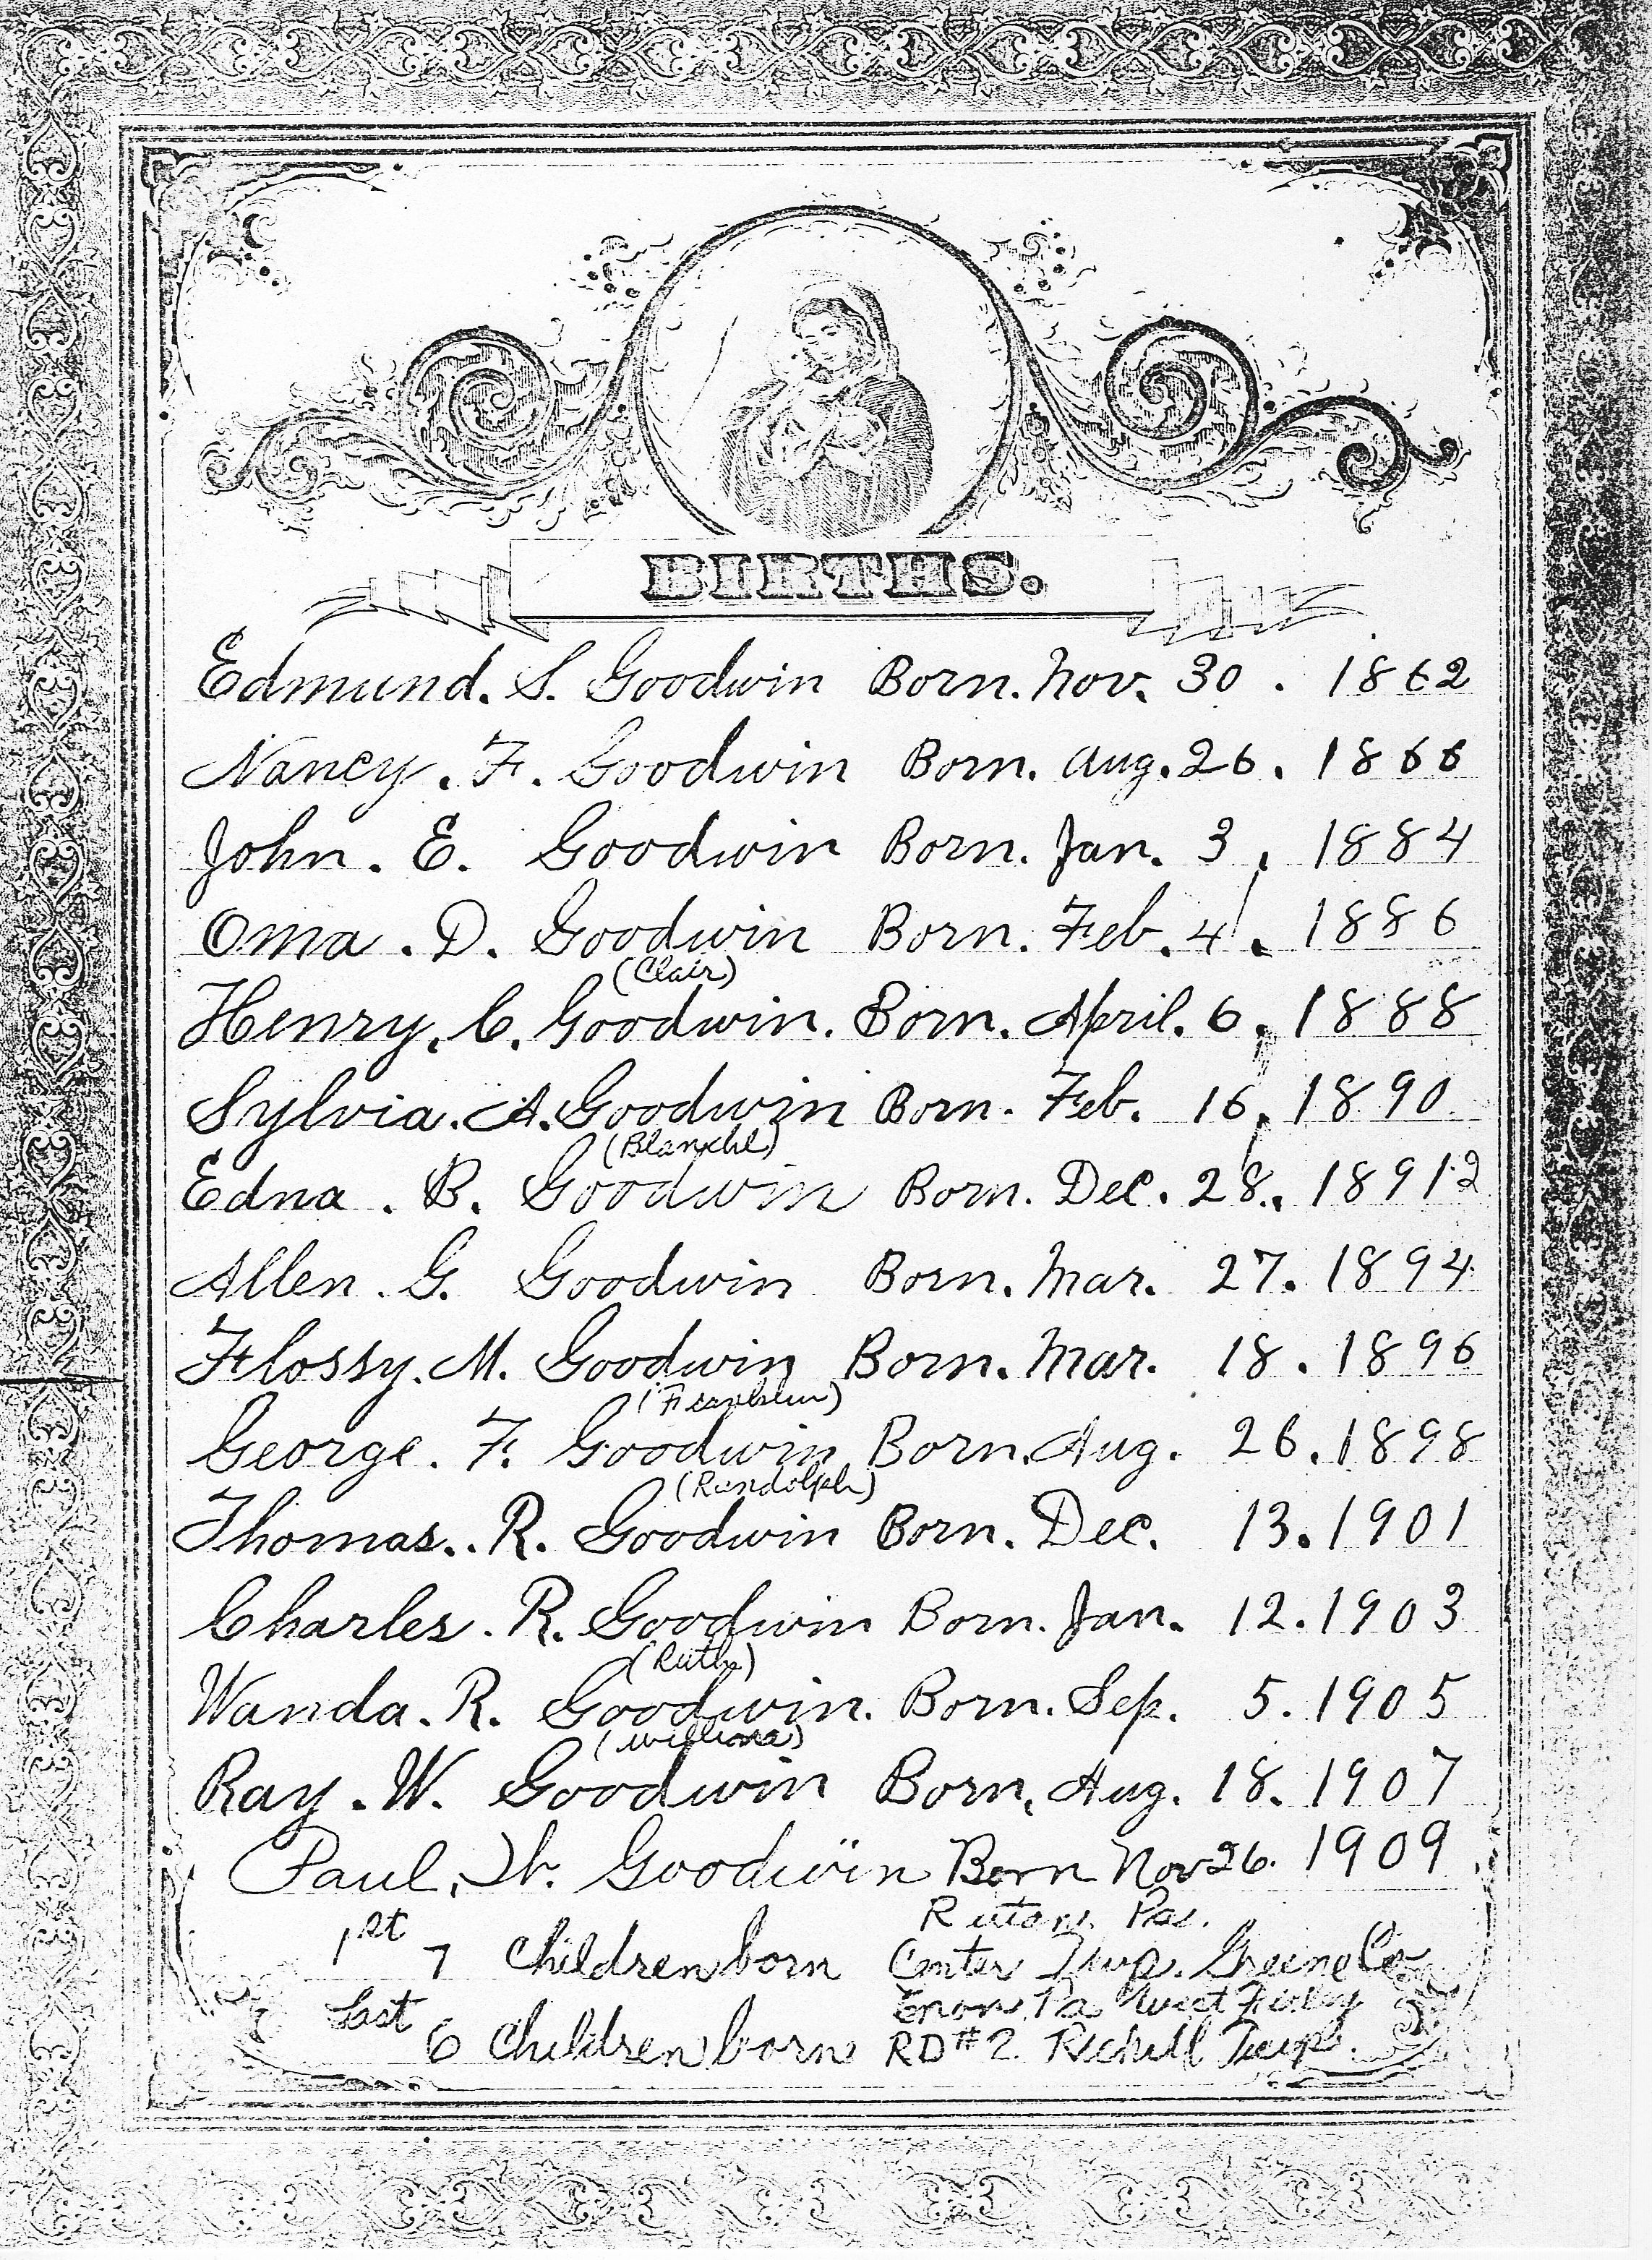 BIRTHS.
Edmund. S. Goodwin Born. Nov. 30 . 1862
Nancy . F. Goodwin Born. Aug. 26. 1866
John . E. Goodwin Born. Jan. 3 , 1884
Oma . D. Goodwin Born. Feb. 4 . 1886
(Clair)
Henry. C. Goodwin. Born. April. 6, 1888
Sylvia. A. Goodwin Born. Feb. 16, 1890
(Blanche)
Edna . B. Goodwin Born. Dec. 28., 18912
Allen . G. Goodwin Born. Mar. 27. 1894
Flossy. M. Goodwin Born. Mar. 18 . 1896
(Franklin)
George . F. Goodwin Born. Aug. 26. 1898
(Randolph)
Thomas.. R. Goodwin Born. Dec. 13. 1901
Charles . R. Goodwin Born. Jan. 12. 1903
(Ruth)
Wanda. R. Goodwin. Born. Sep. 5. 1905
Ray . W. Goodwin Born, Aug. 18. 1907
Paul, Goodwin Born Nov 26. 1909
Rutan Pa.
1st 7 Children born Center Twp. Greene Co
Enon Pa West Finley
Last 6 Children born RD #2 Richill Twp.